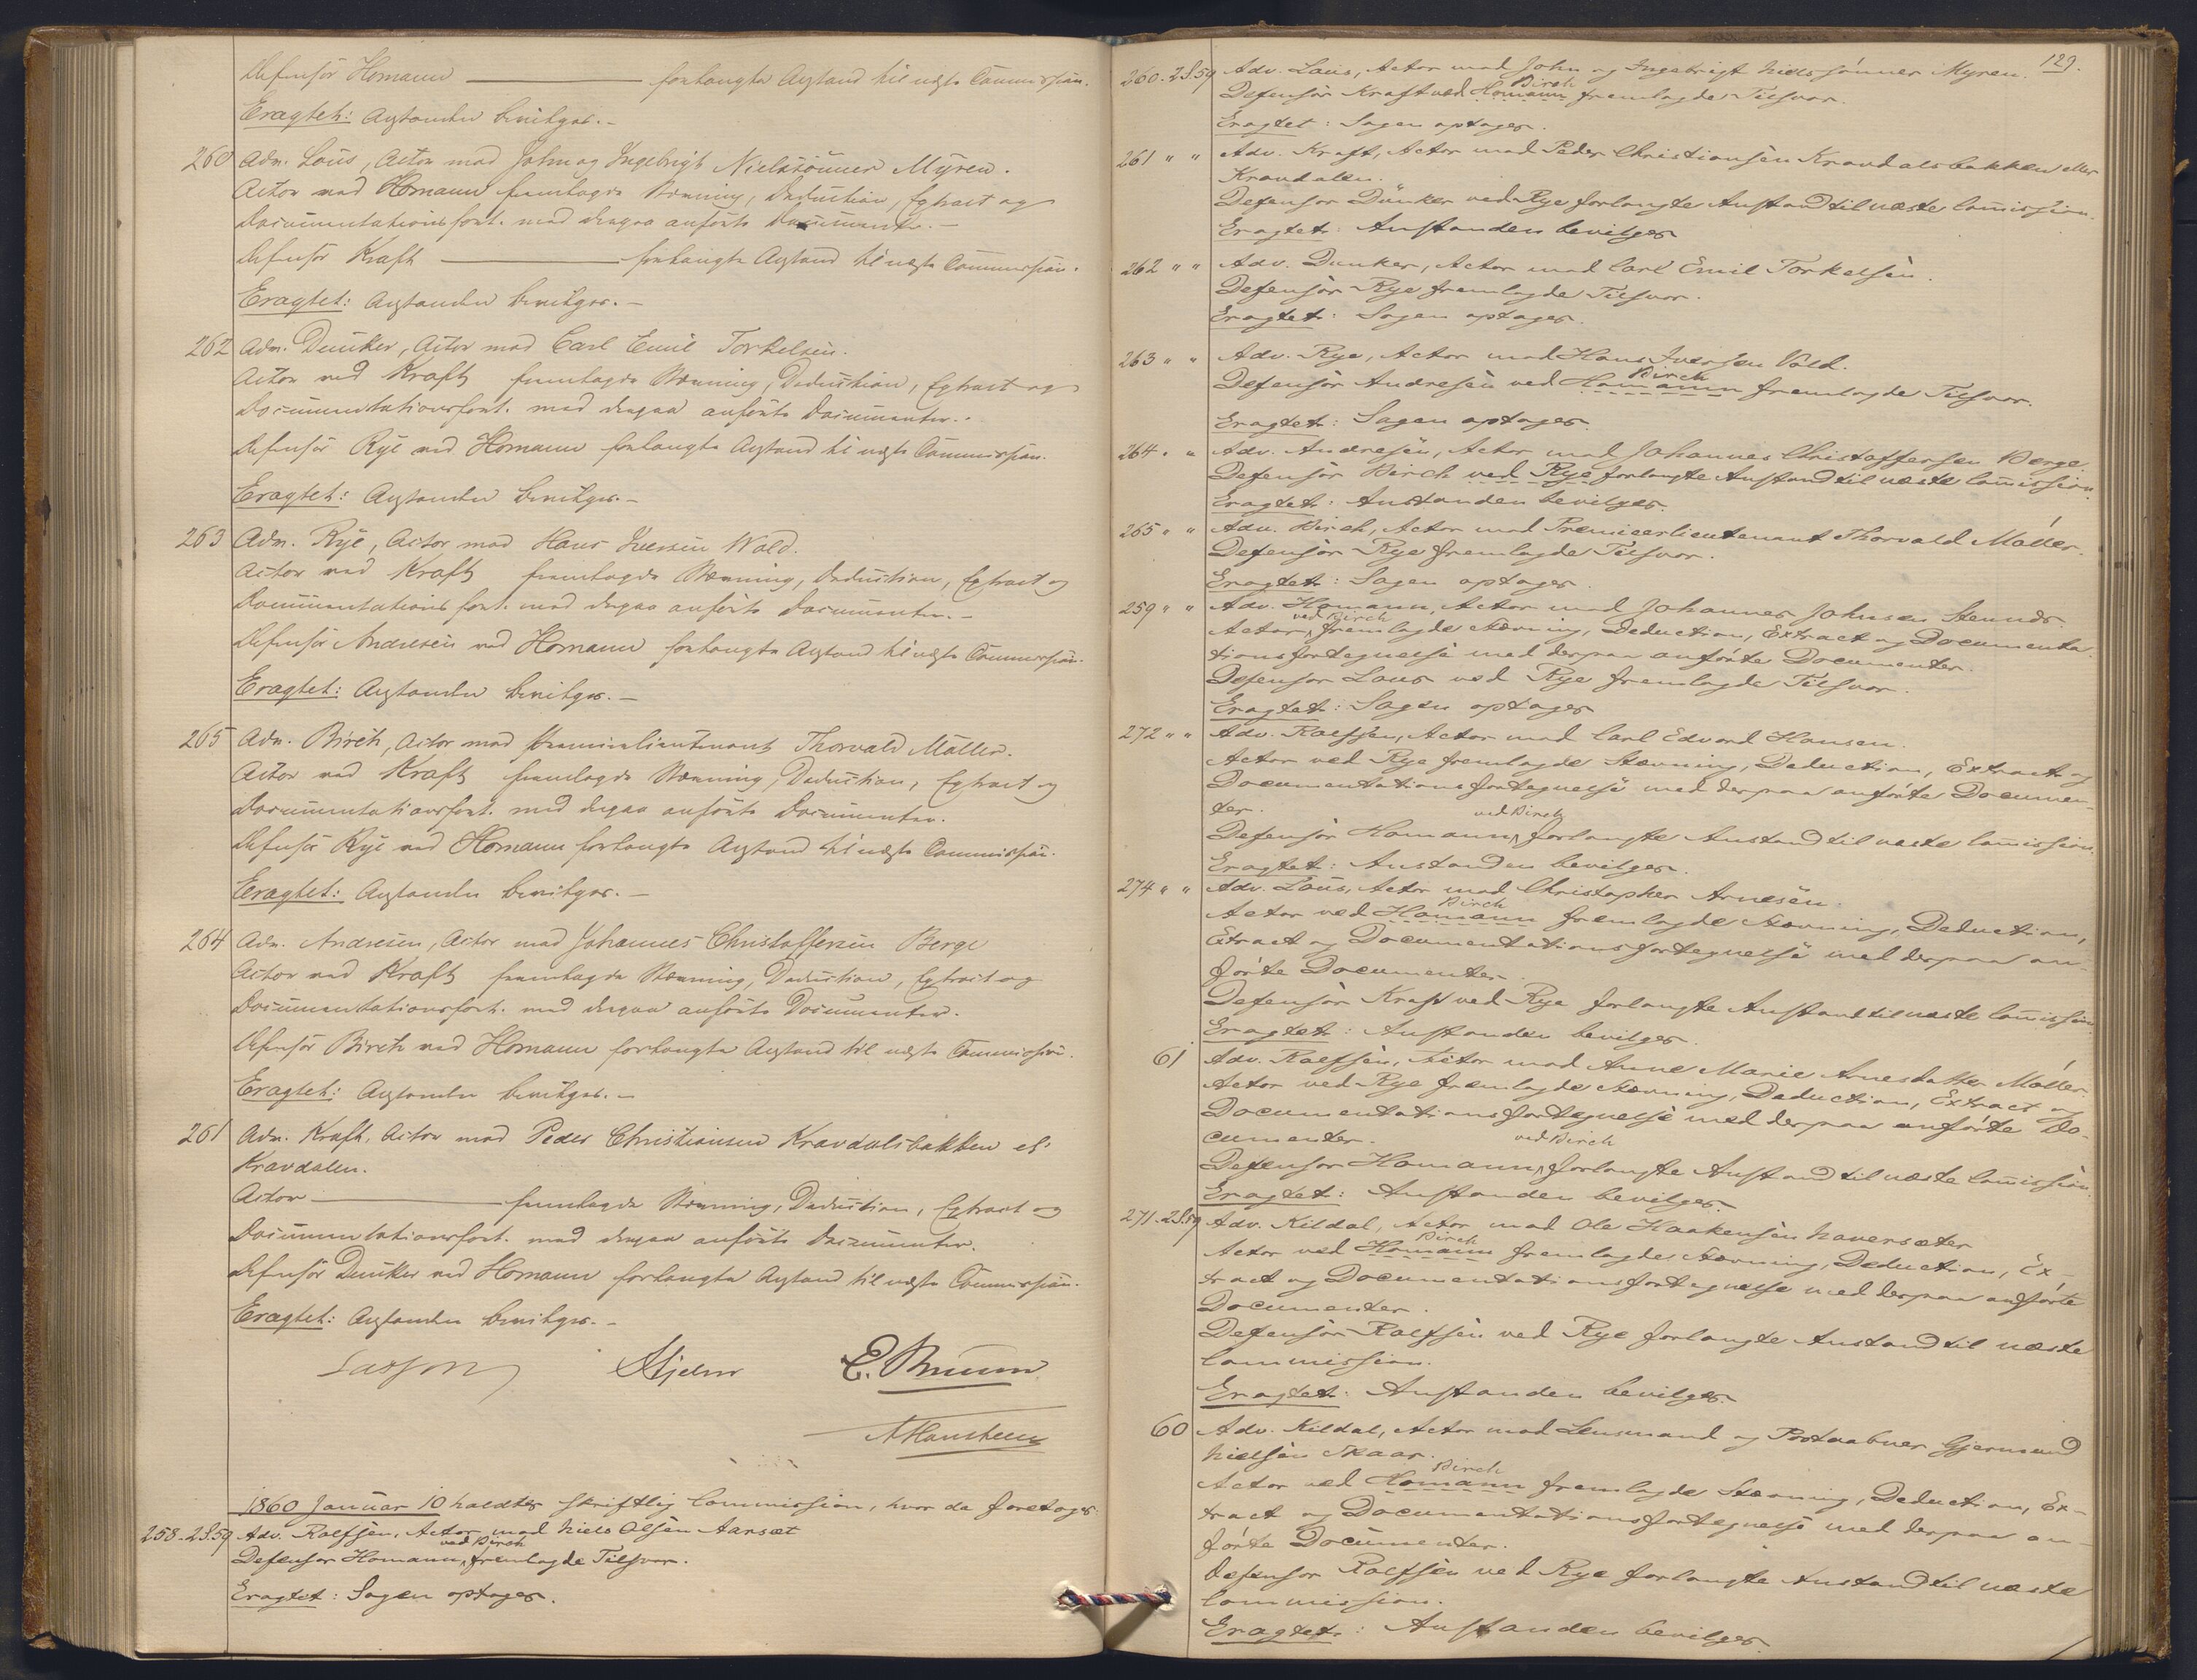 Defensor Homann ——— forlangte Anstand til næste Commission.
Eragtet: Anstanden bevilges.-
260 Adv. Lous, Actor mod John og Ingebrigt Nielssönner Myren.
Actor ved Homann fremlagde Stævning, Deduction, Extract og
Documentationsfort. med derpaa anförte Documenter.-
Defensor Kraft ——— forlangte Anstand til næste Commission.
Eragtet: Anstanden bevilges.-
262 Adv. Dunker, Actor mod Carl Emil Torkelsen.
Actor ved Kraft fremlagde Stævning, Deduction, Extract og
Documentationsfort. med derpaa anförte Documenter.
Defensor Rye ved Homann forlangte Anstand til næste Commission.
Eragtet: Anstanden bevilges.-
263 Adv. Rye, Actor mod Hans Iversen Wold.
Actor ved Kraft fremlagde Stævning, Deduction, Extract og
Documentationsfort. med derpaa anförte Documenter.-
Defensor Andresen ved Homann forlangte Anstand til næste Commission.
Eragtet: Anstanden bevilges.-
265 Adv. Birch, Actor mod Premierlieutenant Thorvald Möller.
Actor ved Kraft fremlagde Stævning, Deduction, Extract og
Documentationsfort. med derpaa anförte Documenter.
Defensor Rye ved Homann forlangte Anstand til næste Commission.
Eragtet: Anstanden bevilges.-
264 Adv. Andresen, Actor mod Johannes Christoffersen Berge
Actor ved Kraft fremlagde Stævning, Deduction, Extract og
Documentationsfort. med derpaa anförte Documenter.
Defensor Birch ved Homann forlangte Anstand til næste Commission.
Eragtet: Anstanden bevilges.-
261 Adv. Kraft, Actor mod Peder Christiansen Kravdalsbakken el.
Kravdalen.
Actor ——— fremlagde Stævning, Deduction, Extract og
Documentationsfort. med derpaa anförte Documenter.
Defensor Dunker ved Homann forlangte Anstand til næste Commission.
Eragtet: Anstanden bevilges.-
Lasson Hjelm E. Bruun
A Hansteen
1860 Januar 10 holdtes skriftlig Commission, hvor da foretoges:
258-2S.59 Adv. Rolfsen, Actor mod Niels Olsen Aarsæt
ved Birch
Defensor Homann, fremlagde Tilsvar.
Eragtet: Sagen optages.
129.
260-2S.59 Adv. Lous, Actor mod John og Ingebrigt Nielssönner Myren.
Birch
Defensor Kraft ved Homann fremlagde Tilsvar.
Eragtet: Sagen optages.
261 " " Adv. Kraft, Actor mod Peder Christiansen Kravdalsbakken eller
Kravdalen.
Defensor Dunker ved Rye forlangte Anstand til næste Com̄ission.
Eragtet: Anstanden bevilges
262 " " Adv. Dunker, Actor mod Carl Emil Torkelsen.
Defensor Rye fremlagde Tilsvar.
Eragtet: Sagen optages.
263 " " Adv. Rye, Actor mod Hans Iversen Vold.
Birch
Defensor Andresen ved Homann fremlagde Tilsvar.
Eragtet: Sagen optages.
264 " " Adv. Andresen, Actor mod Johannes Christoffersen Berge.
Defensor Birch ved Rye forlangte Anstand til næste Com̄ission.
Eragtet: Anstanden bevilges.
265 " " Adv. Birch, Actor mod Premierlieutenant Thorvald Möller.
Defensor Rye fremlagde Tilsvar.
Eragtet: Sagen optages.
259 " " Adv. Homann, Actor mod Johannes Johnsen
ved Birch
Actor, fremlagde Stævning, Deduction, Extract og Documenta-
tionsfortegnelse med derpaa anförte Documenter.
Defensor Lous ved Rye fremlagde Tilsvar.
Eragtet: Sagen optages
272 " " Adv. Rolfsen, Actor mod Carl Edvard Hansen.
Actor ved Rye fremlagde Stævning, Deduction, Extract og
Documentationsfortegnelse med derpaa anförte Documen-
ter.
ved Birch
Defensor Homann, forlangte Anstand til næste Com̄ission.
Eragtet: Anstanden bevilges.
274 " " Adv. Lous, Actor mod Christopher Arnesen.
Birch
Actor ved Homann fremlagde Stævning, Deduction,
Extract og Documentationsfortegnelse med derpaa an-
förte Documenter.
Defensor Kraft ved Rye forlangte Anstand til næste Com̄ission.
Eragtet: Anstanden bevilges.
61 Adv. Rolfsen, Actor mod Anne Marie Arnesdatter Möller.
Actor ved Rye fremlagde Stævning, Deduction, Extract og
Documentationsfortegnelse med derpaa anförte Do-
cumenter.
ved Birch
Defensor Homann, forlangte Anstand til næste Com̄ission.
Eragtet: Anstanden bevilges.
271-2S.59 Adv. Kildal, Actor mod Ole Haakensen Haversæter
Birch
Actor ved Homann fremlagde Stævning, Deduction, Ex-
tract og Documentationsfortegnelse med derpaa anförte
Documenter.
Defensor Rolfsen ved Rye forlangte Anstand til næste
Commission.
Eragtet: Anstanden bevilges.
60 Adv. Kildal, Actor mod Lensmand og Postaabner Gjermund
Nielsen Skaar.
Birch
Actor ved Homann fremlagde Stævning, Deduction, Ex-
tract og Documentationsfortegnelse med derpaa an-
förte Documenter.
Defensor Rolfsen ved Rye forlangte Anstand til næste
Commission.
Eragtet: Anstanden bevilges.